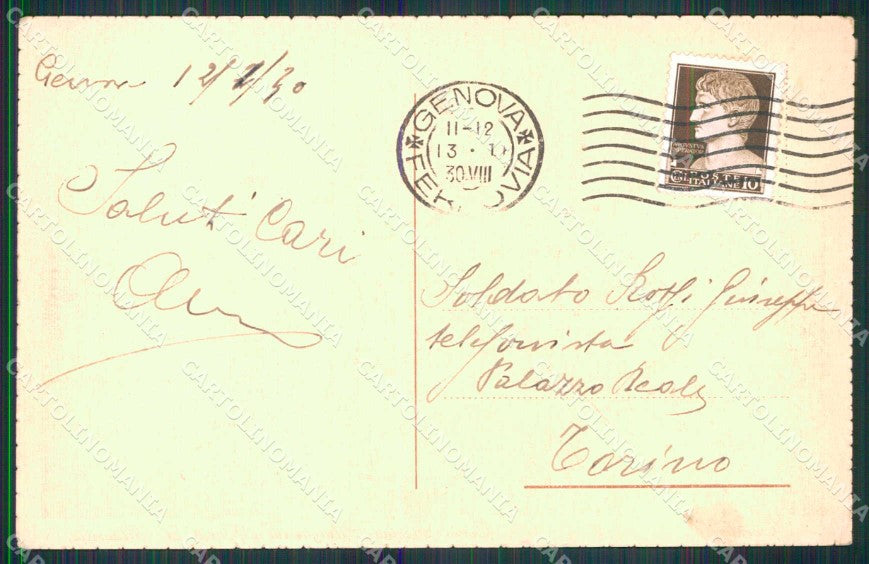 Genova 12/1/30
Saluti Cari
GENOVA
11-12
13 · 1
30.VIII
FERROVIA
POSTE
ITALIANE 10
Soldato Giuseppe
telefonista
Palazzo Reale
Torino
CARTOLINOMANIA